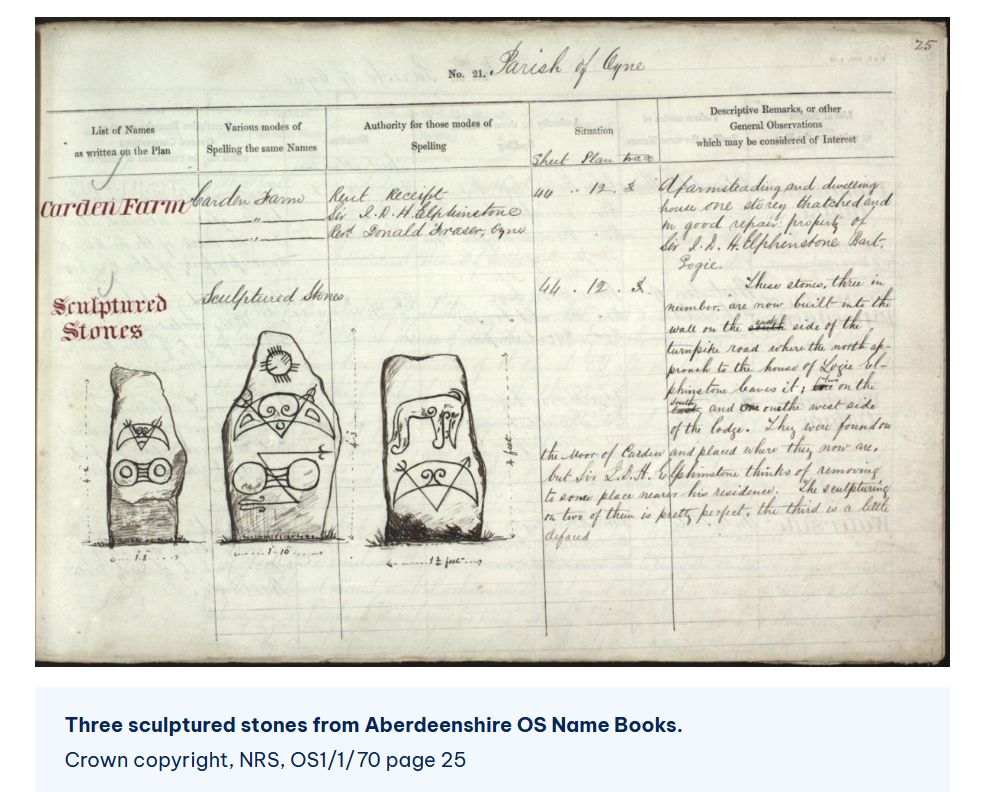 25
No. 21. Parish of Oyne
List of Names
as written on the Plan
Various modes of
Spelling the same Names
Authority for those modes of
Spelling
Situation
Sheet Plan trace
Descriptive Remarks, or other
General Observations
which may be considered of Interest
Carden Farm
Carden Farm
"
"
Rent Receipt
Sir J. D. H. Elphinstone
Revd. Donald Fraser, Oyne
44 .. 12 . 3
A farmsteading and dwelling
house one storey thatched and
in good repair property of
Sir J. D. H. Elphinstone Bart.
Logie.
Sculptured
Stones
Sculptured Stones
44 . 12 . 3
These stones, three in
number, are now built into the
wall on the south east side of the
turnpike road where the north ap-
proach to the house of Logie El-
phinstone leaves it; two on the
south east and one on the west side
of the lodge. They were found on
the Moor of Carden and placed where they now are,
but Sir J. D. H. Elphinstone thinks of removing
to some place nearer his residence. The sculpturing
on two of them is pretty perfect, the third is a little
defaced
4 feet
1'.8"
1'.10"
1½ feet
Three sculptured stones from Aberdeenshire OS Name Books.
Crown copyright, NRS, OS1/1/70 page 25